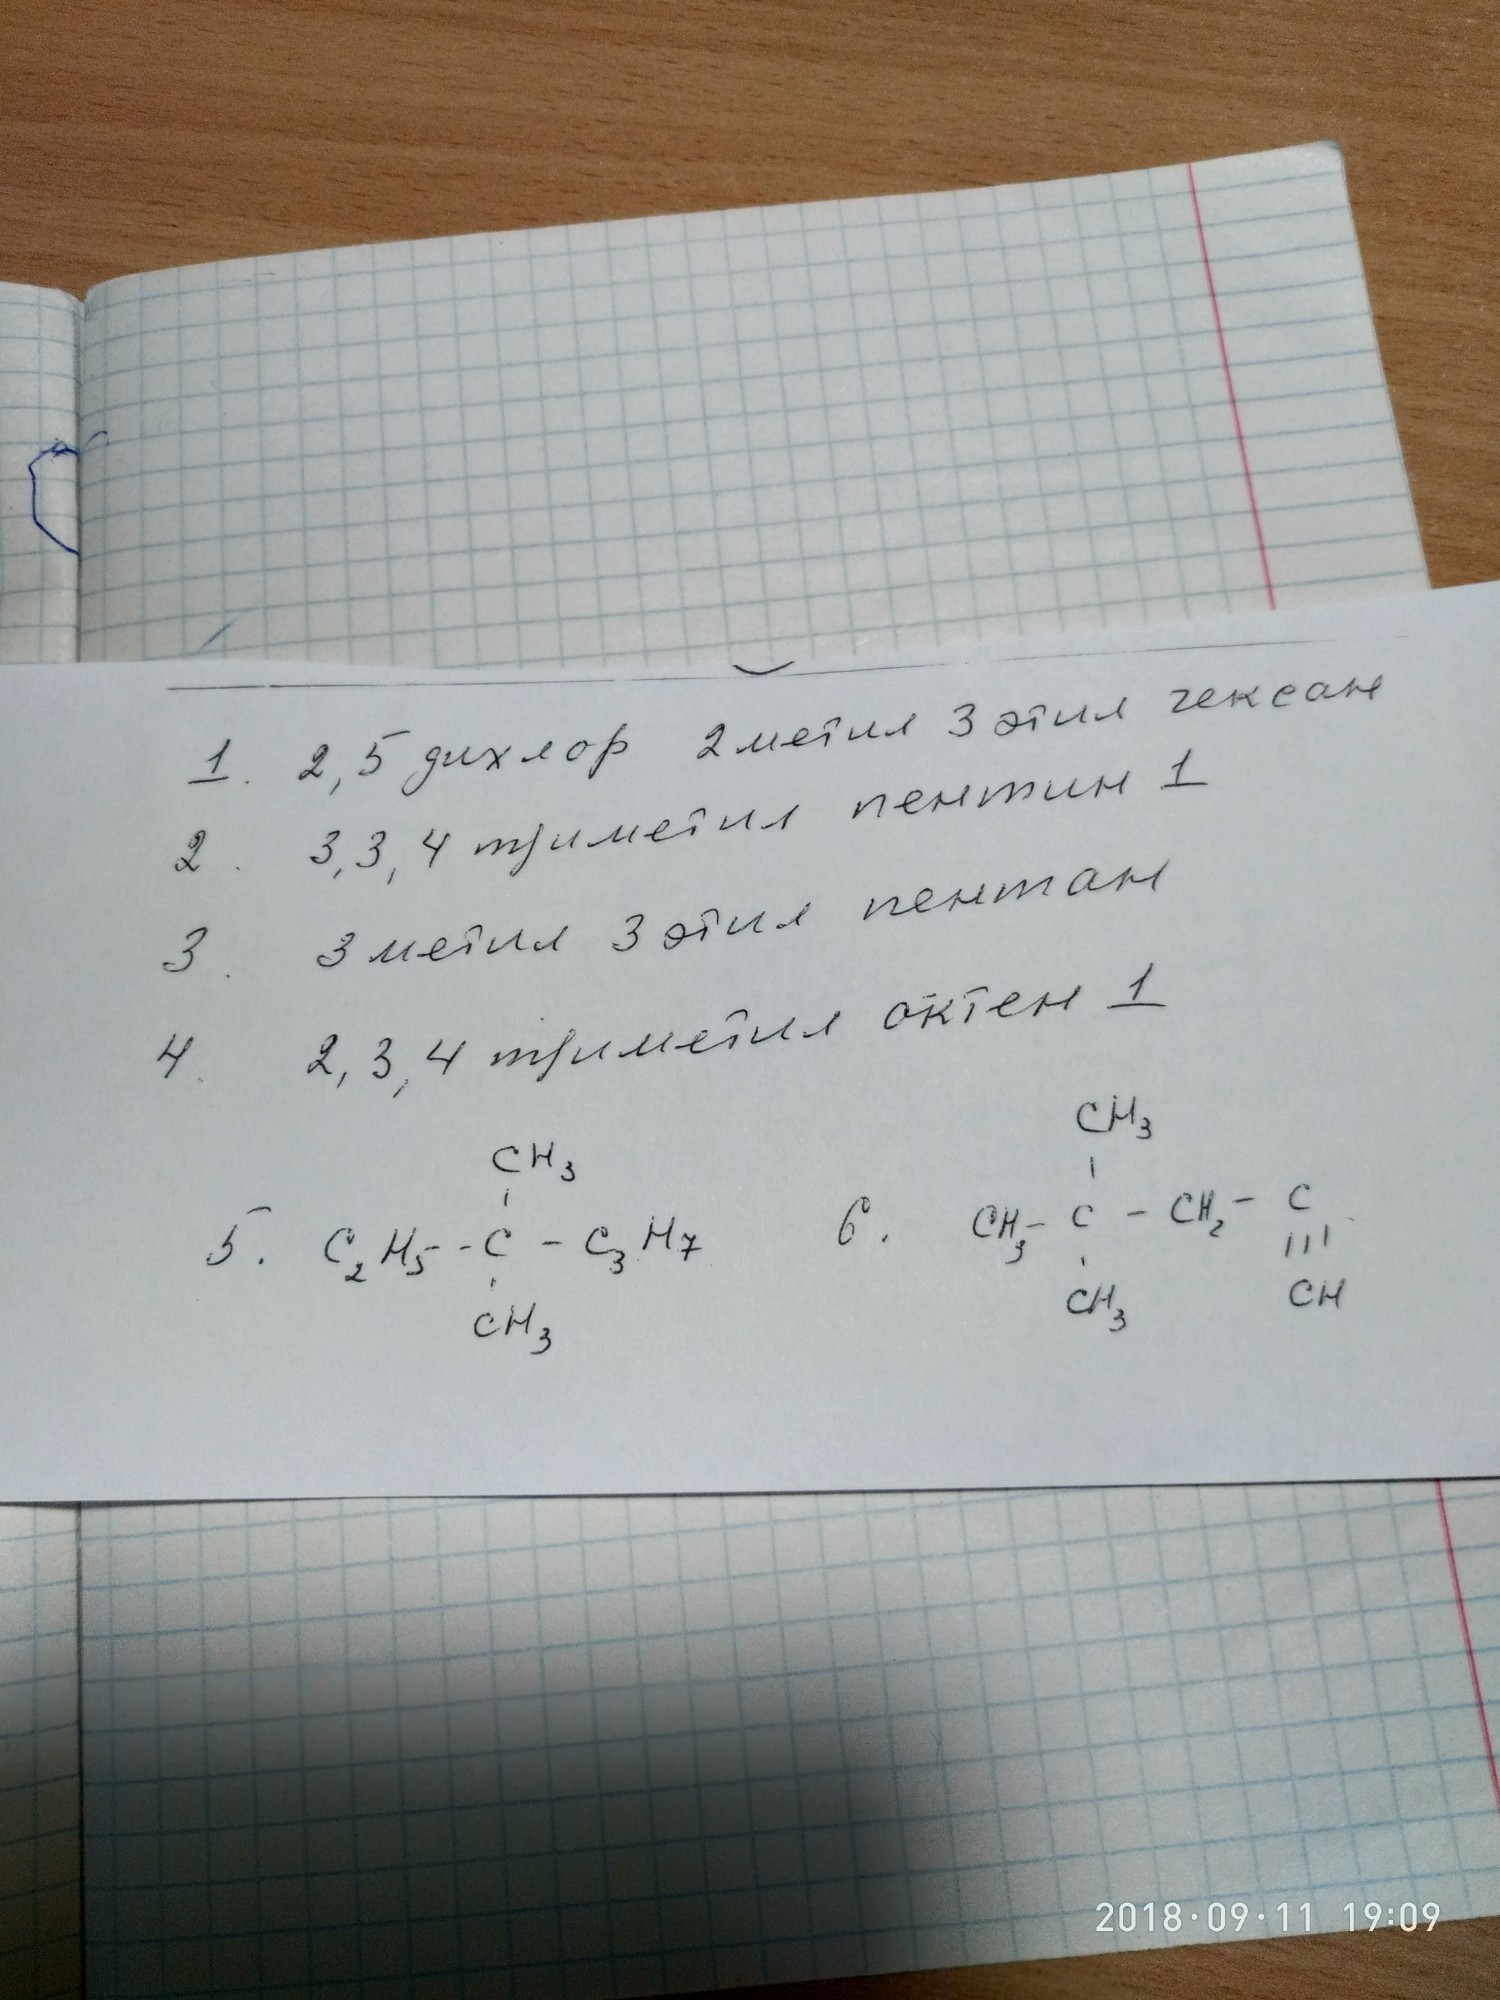 1. 2,5 дихлор 2 метил 3 этил гексан
2. 3,3,4 триметил пентин 1
3. 3 метил 3 этил пентан
4. 2,3,4 триметил октен 1
CH₃
5. C₂H₅ - C - C₃H₇
CH₃
CH₃
6. CH₃ - C - CH₂ - C
|||
CH₃ CH
2018·09·11 19:09